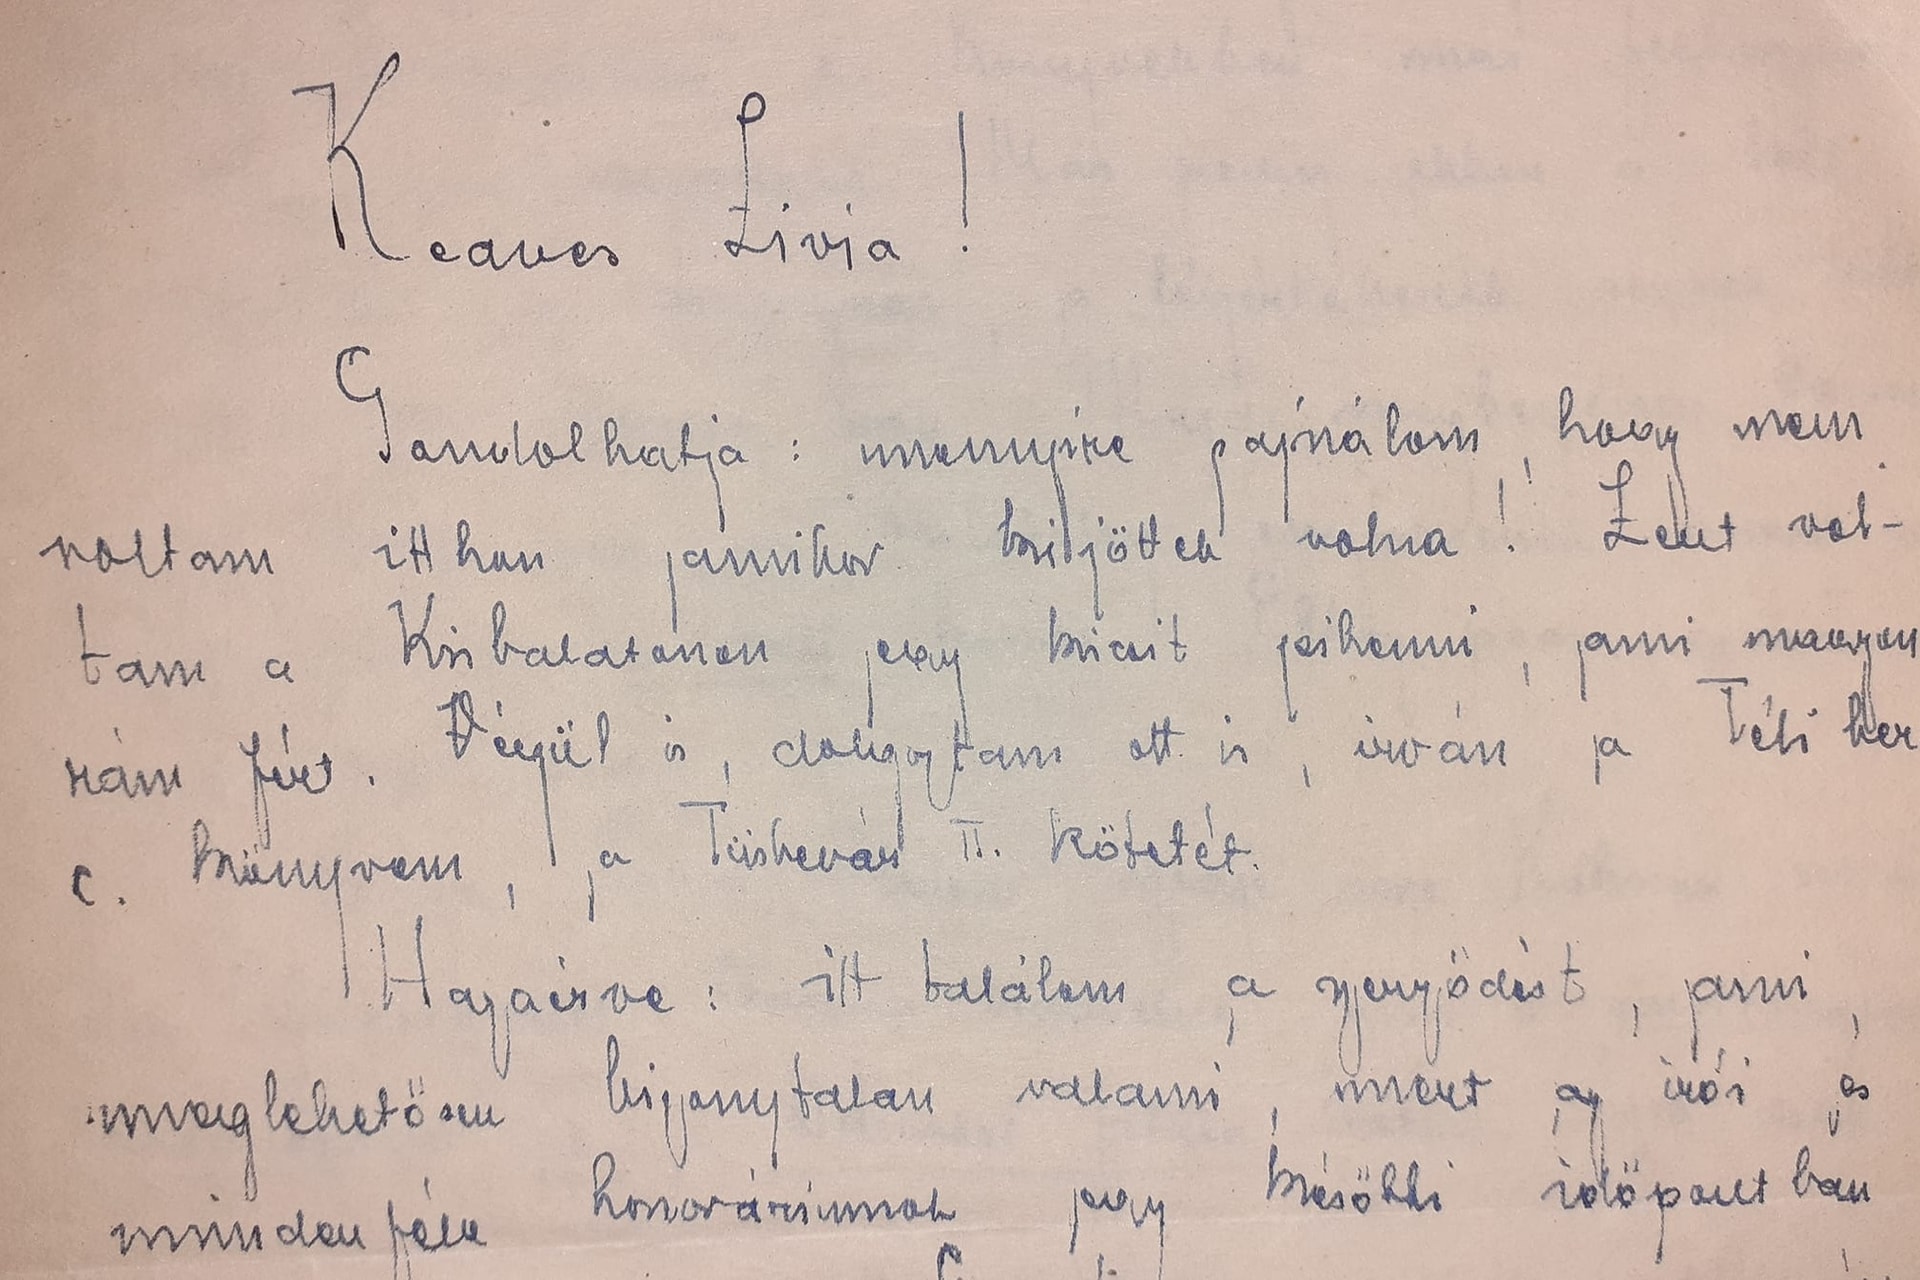 Kedves Livia!
Gondolhatja: mennyire sajnálom, hogy nem
voltam itthon amikor kijöttek volna! Lent vol-
tam a Kisbalatonon egy kicsit pihenni, ami nagyon
rám fért. Végül is, dolgoztam ott is, irván a Téli ber
c. könyvem, a Tüskevár II. kötetét.
Hazaérve: itt találom a szerződést, ami,
meglehetősen bizonytalan valami, mert az irói és
mindenféle honoráriumok egy későbbi időpontban